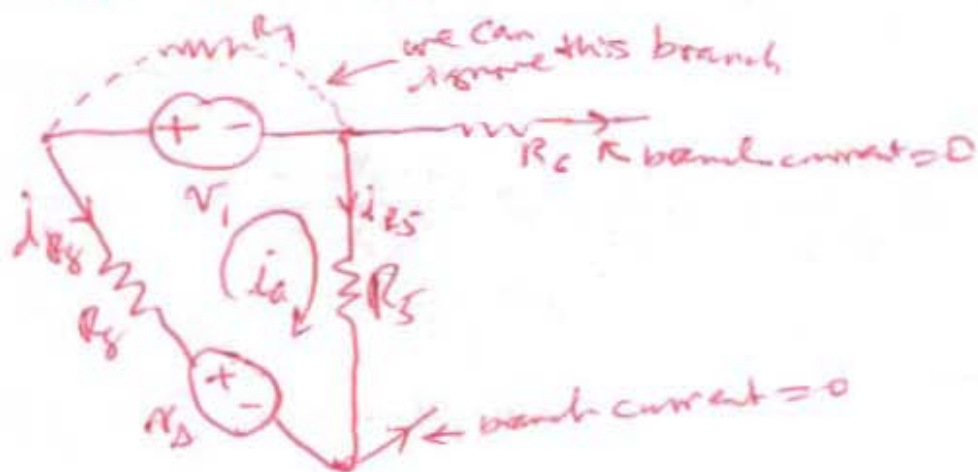 R7
we can
ignore this branch
+ -
R6
branch current = 0
v1
iR8
iR5
ia
R5
R8
+
-
vΔ
branch current = 0